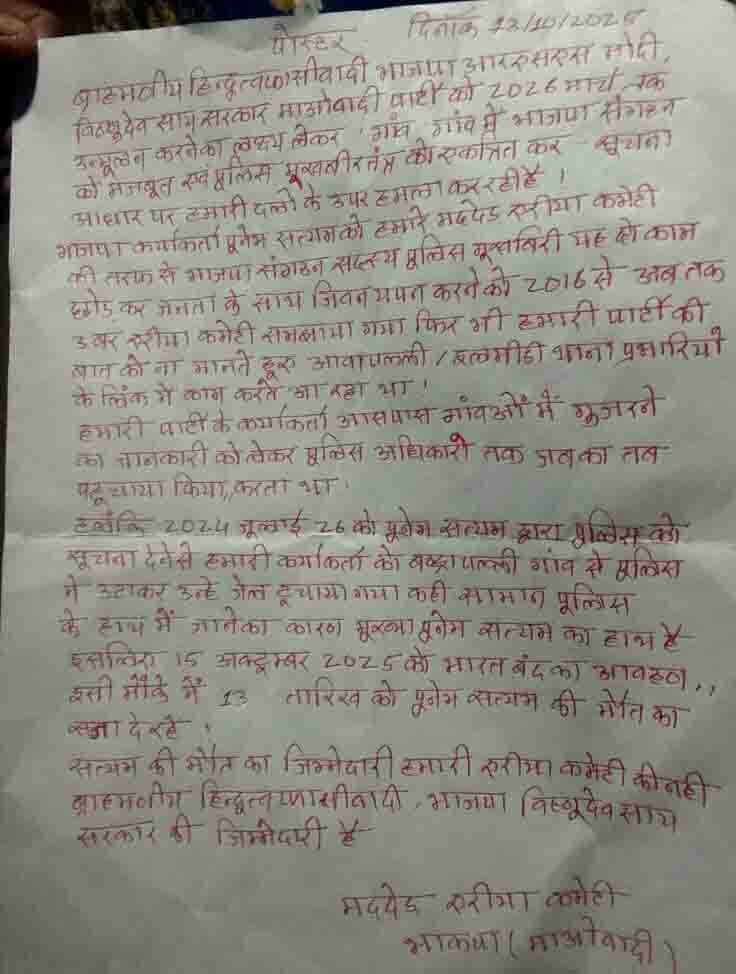 पोस्टर दिनांक 12/10/2025
ब्राहमणीय हिन्दुत्वफासीवादी भाजपा आरएसएस मोदी,
विष्णुदेव साय सरकार माओवादी पार्टी को 2026 मार्च तक
उन्मूलन करनेका लक्ष्य लेकर गांव गांव में भाजपा संगठन
को मजबूत एवं पुलिस मूखबीर तंत्र को एकत्रित कर सूचना
आधार पर हमारी दलों के उपर हमला कर रही है !
भाजपा कार्यकर्ता पूनेम सत्यम को हमारे मददेड एरीया कमेटी
की तरफ से भाजपा संगठन सदस्य पुलिस मूखबिरी यह दो काम
छोड कर जनता के साथ जिवन यपन करने को 2016 से अब तक
3 बार एरीया कमेटी समझाया गया फिर भी हमारी पार्टी की
बात को ना मानते हूए आवापल्ली / इलमीडी थाना प्रभारियों
के लिंक में काम करते आ रहा था !
हमारी पार्टी के कर्याकर्ता आसपास गांवओं में गूजरने
का जानकारी को लेकर पुलिस अधिकारी तक जब का तब
पहूचाया किया, करता था !
हलांकि 2024 जूलाई 26 को पूनेम सत्यम द्वारा पुलिस को
सूचना देने से हमारी कर्याकर्ता को गांव से पुलिस
ने उठाकर उन्हे जेल दूचाया गया कही सामान पुलिस
के हाथ में जानेका कारण पूनेम सत्यम का हाथ है
इसलिए 15 अक्टूम्बर 2025 को भारत बंद का आवहन,,
इसी मौके में 13 तारिख को पूनेम सत्यम की मौत का
सजा दे रहे !
सत्यम की मौत का जिम्मेदारी हमारी एरीया कमेटी की नही
ब्राहमणीय हिन्दुत्वफासीवादी, भाजपा विष्णूदेव साय
सरकार की जिम्मेदारी है
मददेड एरीया कमेटी
भाकपा (माओवादी)